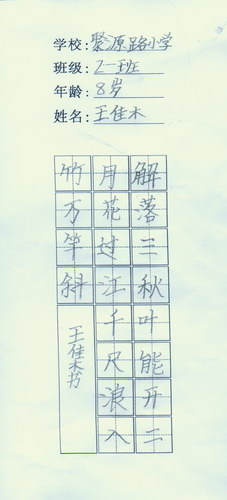 学校:聚源路小学
班级:2一班
年龄:8岁
姓名:王佳木
解落三秋叶能开二
月花过江千尺浪入
竹万竿斜
王佳木书